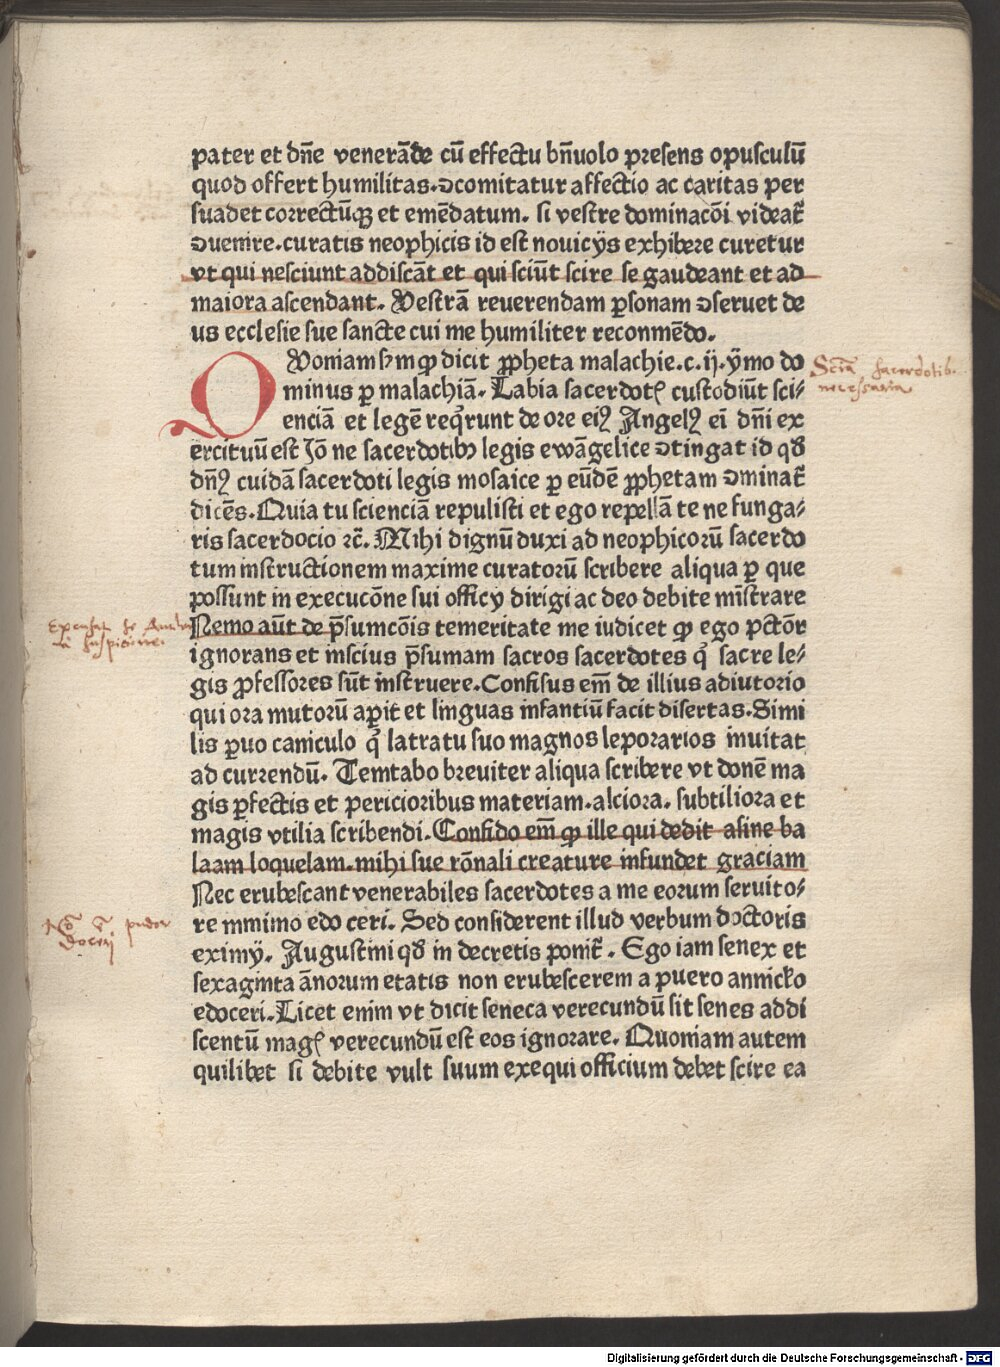 pater et dn̄e venerāde cū effectu bn̄uolo presens opusculū
quod offert humilitas.ↄcomitatur affectio ac caritas per
suadet correctūqꝫ et emēdatum. si vestre dominacōi videat᷑
ↄuenire.curatis neophicis id est nouicijs exhibere curetur
vt qui nesciunt addiscāt et qui sciūt scire se gaudeant et ad
maiora ascendant. Vestrā reuerendam ꝑsonam ↄseruet de
us ecclesie sue sancte cui me humiliter reconmēdo.
QVoniam sꝫm ꝙ dicit ꝓpheta malachie.c.ij.ymo do
minus ꝑ malachiā. Labia sacerdotꝭ custodiūt sci⸗
enciā et legē reqͥrunt de ore eiꝰ Angelꝰ ei dn̄i ex
ercituū est Jō ne sacerdotibꝫ legis ewāgelice ↄtingat id qd̄
dn̄ꝰ cuidā sacerdoti legis mosaice ꝑ eūdē ꝓphetam ↄminat᷑
dicēs.Quia tu scienciā repulisti et ego repellā te ne funga⸗
ris sacerdocio ꝛc̄. Mihi dignū duxi ad neophicorū sacerdo
tum instructionem maxime curatorū scribere aliqua ꝑ que
possunt in execucōne sui officij dirigi ac deo debite mīstrare
Nemo aūt de p̄sumcōis temeritate me iudicet ꝙ ego pctōr
ignorans et inscius p̄sumam sacros sacerdotes qͥ sacre le⸗
gis ꝓfessores sūt instruere.Confisus em̄ de illius adiutorio
qui ora mutorū aꝑit et linguas infantiū facit disertas.Simi
lis ꝑuo caniculo qͥ latratu suo magnos leporarios inuitat
ad currendū. Temtabo breuiter aliqua scribere vt donē ma
gis ꝑfectis et pericioribus materiam.alciora. subtiliora et
magis vtilia scribendi.Confido em̄ ꝙ ille qui dedit asine ba
laam loquelam.mihi sue rōnali creature infundet graciam
Nec erubescant venerabiles sacerdotes a me eorum seruito⸗
re minimo edo ceri. Sed considerent illud verbum doctoris
eximij. Augustini qd̄ in decretis ponit᷑. Ego iam senex et
sexaginta ānorum etatis non erubescerem a puero annicĺo
edoceri.Licet enim vt dicit seneca verecundū sit senes addi
scentū magꝭ verecundū est eos ignorare. Quoniam autem
quilibet si debite vult suum exequi officium debet scire ea
Sciā sacerdotib.
necessaria
Nō ē pudor
doceri
Digitalisierung gefördert durch die Deutsche Forschungsgemeinschaft - DFG